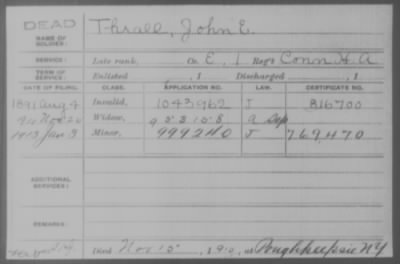 DEAD
NAME OF SOLDIER: Thrall, John E.
SERVICE: Late rank, Co. E, 1 Reg't Conn H A
TERM OF SERVICE: Enlisted , 1 Discharged , 1
DATE OF FILING. CLASS. APPLICATION NO. LAW. CERTIFICATE NO.
1891 Aug 4 Invalid, 1043962 J 816700
Nov 20 Widow, 955155 a
1913 Jan 3 Minor, 999240 J 769,470
ADDITIONAL SERVICES:
REMARKS:
Died Nov 15, 1910, at Poughkeepsie NY